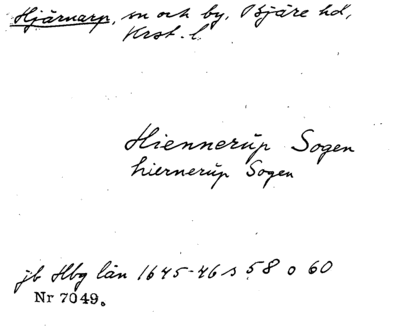 Hjärnarp, sn och by, Bjäre hd,
Krst. l
Hiennerup Sogen
hiernerup Sogen
jb Hbg län 1645-46 s 58 o 60
Nr 7049.